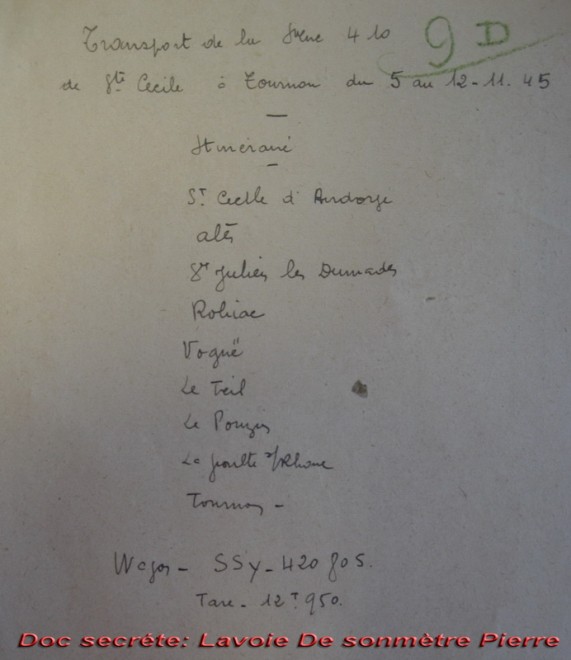 Transport de la 410 9D
de Ste Cecile à Tournon du 5 au 12-11.45
Itinéraire
St Cecile d'Andorge
alès
St Julien les Dumades
Robiac
Voguë
Le Teil
Le Pouzin
La poulte s/Rhone
Tournon -
Wagon - SSy - 420 805.
Tare - 12T 950.
Doc secréte: Lavoie De sonmètre Pierre